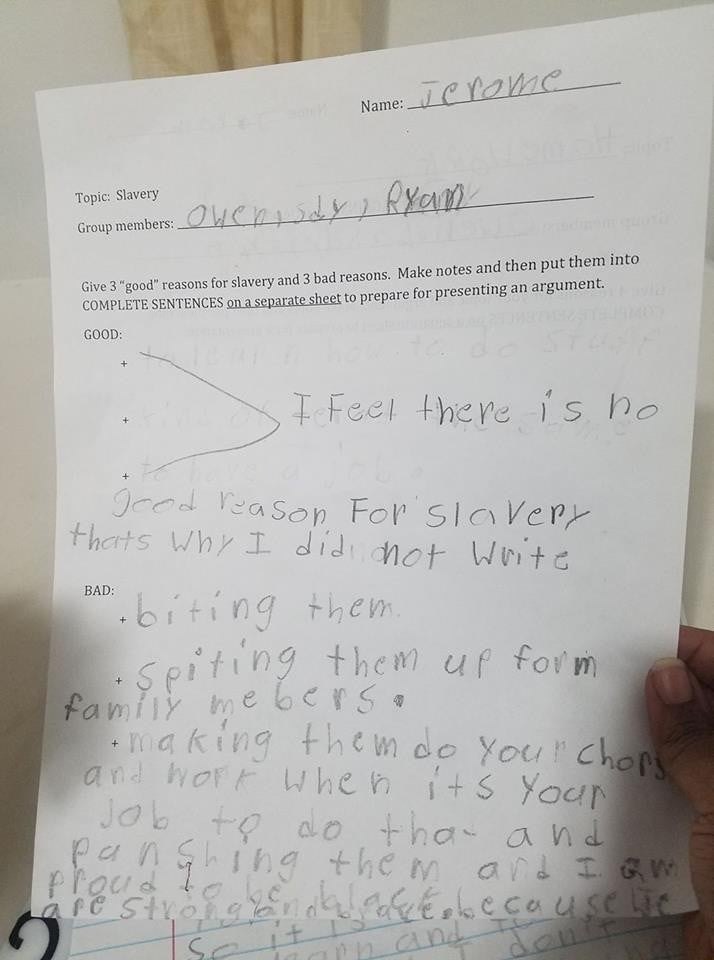 Name: Jerome
Topic: Slavery
Group members: Owen, sdy, Ryan
Give 3 "good" reasons for slavery and 3 bad reasons. Make notes and then put them into
COMPLETE SENTENCES on a separate sheet to prepare for presenting an argument.
GOOD:
+
+ I Feel there is no
+
good reason For slavery
thats Why I did not Write
BAD:
+ biting them.
+ Spiting them up form
family mebers.
+ making them do your chors
and work when its your
Job to do that and
panshing them and I am
proud to be black because We
are strong and
so it
and I don't